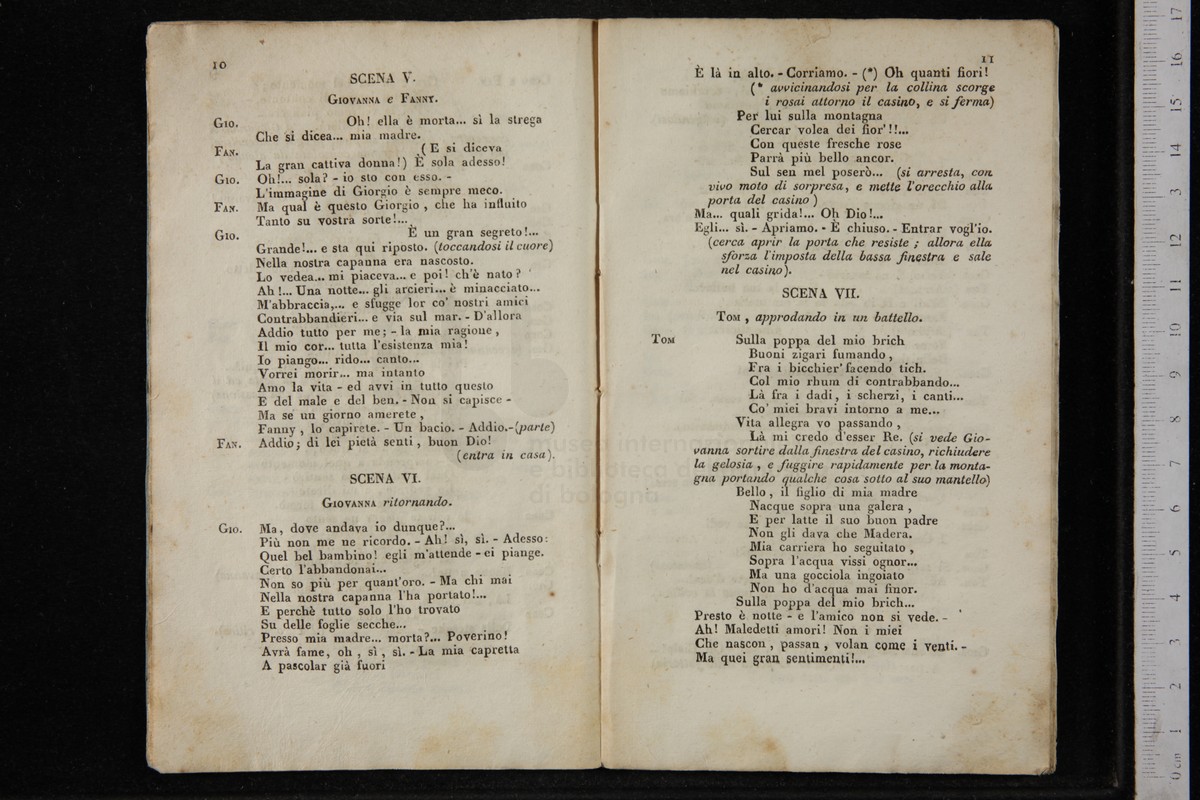 10
SCENA V.
GIOVANNA e FANNY.
GIO. Oh! ella è morta... sì la strega
Che si dicea... mia madre.
FAN. (E si diceva
La gran cattiva donna!) È sola adesso!
GIO. Oh!... sola? - io sto con esso. -
L'immagine di Giorgio è sempre meco.
FAN. Ma qual è questo Giorgio, che ha influito
Tanto su vostra sorte!...
GIO. È un gran segreto!...
Grande!... e sta qui riposto. (toccandosi il cuore)
Nella nostra capanna era nascosto.
Lo vedea... mi piaceva... e poi! ch'è nato?
Ah!... Una notte... gli arcieri... è minacciato...
M'abbraccia,... e sfugge lor co' nostri amici
Contrabbandieri... e via sul mar. - D'allora
Addio tutto per me; - la mia ragione,
Il mio cor... tutta l'esistenza mia!
Io piango... rido... canto...
Vorrei morir... ma intanto
Amo la vita - ed avvi in tutto questo
E del male e del ben. - Non si capisce -
Ma se un giorno amerete,
Fanny, lo capirete. - Un bacio. - Addio.-(parte)
FAN. Addio; di lei pietà senti, buon Dio!
(entra in casa).
SCENA VI.
GIOVANNA ritornando.
GIO. Ma, dove andava io dunque?...
Più non me ne ricordo. - Ah! sì, sì. - Adesso:
Quel bel bambino! egli m'attende - ei piange.
Certo l'abbandonai...
Non so più per quant'oro. - Ma chi mai
Nella nostra capanna l'ha portato!...
E perchè tutto solo l'ho trovato
Su delle foglie secche...
Presso mia madre... morta?... Poverino!
Avrà fame, oh, sì, sì. - La mia capretta
A pascolar già fuori
11
È là in alto. - Corriamo. - (*) Oh quanti fiori!
(* avvicinandosi per la collina scorge
i rosai attorno il casino, e si ferma)
Per lui sulla montagna
Cercar volea dei fior'!!...
Con queste fresche rose
Parrà più bello ancor.
Sul sen mel poserò... (si arresta, con
vivo moto di sorpresa, e mette l'orecchio alla
porta del casino)
Ma... quali grida!... Oh Dio!...
Egli... sì. - Apriamo. - È chiuso. - Entrar vogl'io.
(cerca aprir la porta che resiste; allora ella
sforza l'imposta della bassa finestra e sale
nel casino).
SCENA VII.
TOM, approdando in un battello.
TOM Sulla poppa del mio brich
Buoni zigari fumando,
Fra i bicchier' facendo tich.
Col mio rhum di contrabbando...
Là fra i dadi, i scherzi, i canti...
Co' miei bravi intorno a me...
Vita allegra vo passando,
Là mi credo d'esser Re. (si vede Gio-
vanna sortire dalla finestra del casino, richiudere
la gelosia, e fuggire rapidamente per la monta-
gna portando qualche cosa sotto al suo mantello)
Bello, il figlio di mia madre
Nacque sopra una galera,
E per latte il suo buon padre
Non gli dava che Madera.
Mia carriera ho seguitato,
Sopra l'acqua vissi ognor...
Ma una gocciola ingoiato
Non ho d'acqua mai finor.
Sulla poppa del mio brich...
Presto è notte - e l'amico non si vede. -
Ah! Maledetti amori! Non i miei
Che nascon, passan, volan come i venti. -
Ma quei gran sentimenti!...
museo internazionale
e biblioteca d
di bologna
0 cm 1 2 3 4 5 6 7 8 9 10 11 12 13 14 15 16 17